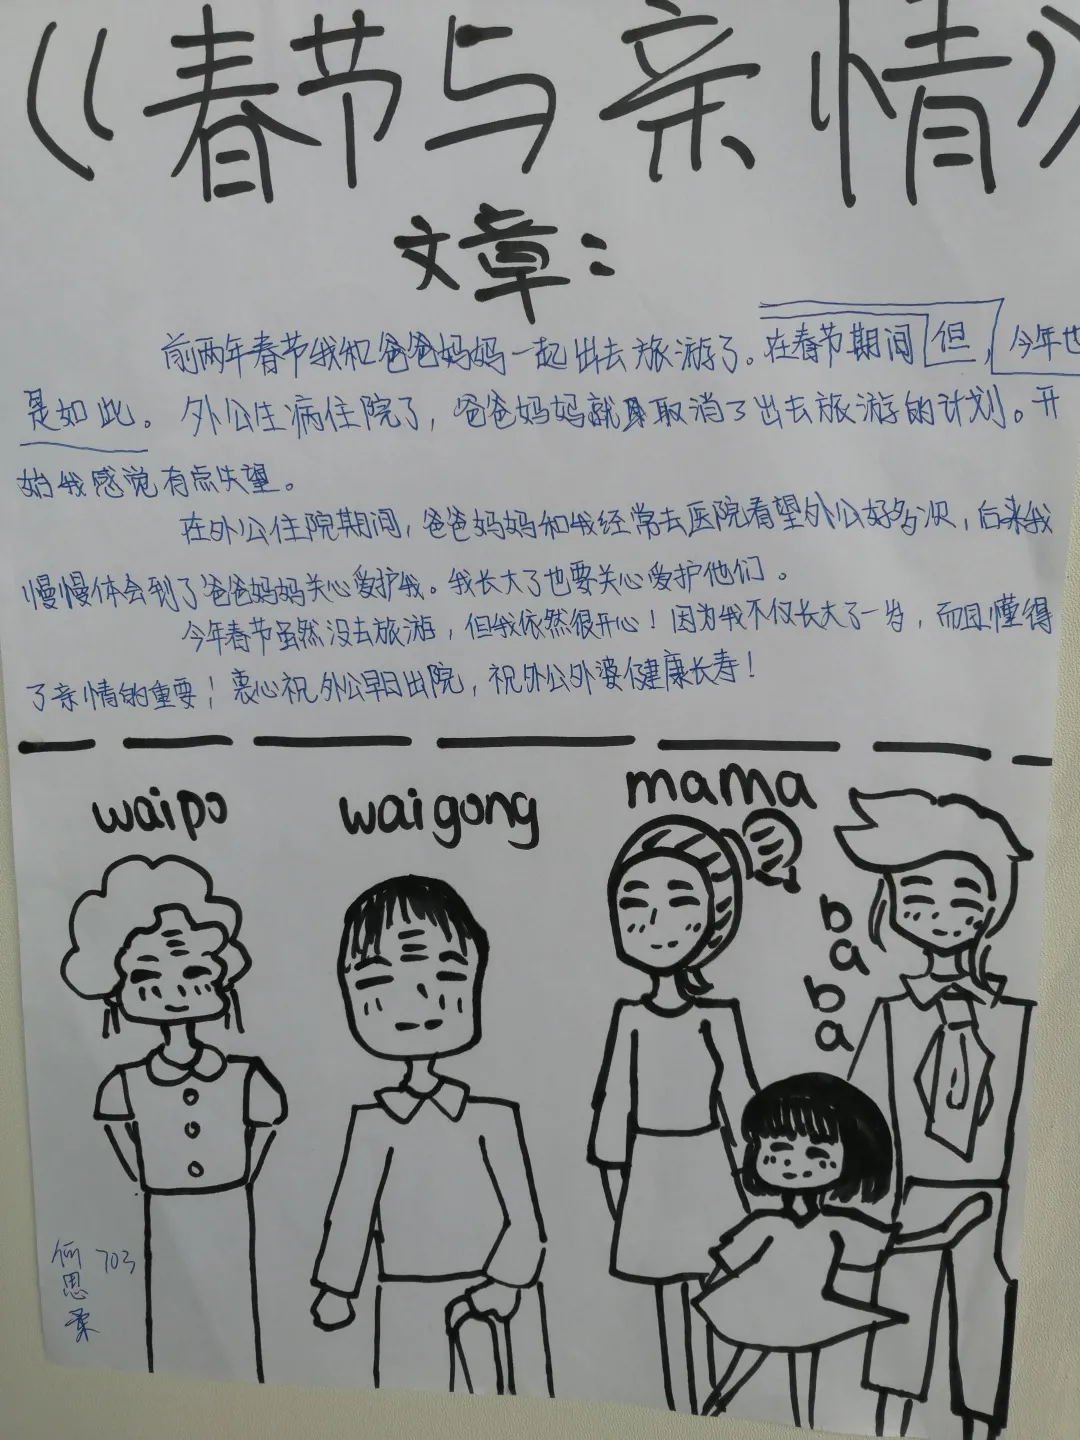 《春节与亲情》
文章：
前两年春节我和爸爸妈妈一起出去旅游了。在春节期间但，今年也
是如此。外公生病住院了，爸爸妈妈就取消了出去旅游的计划。开
始我感觉有点失望。
在外公住院期间，爸爸妈妈和我经常去医院看望外公好多次，后来我
慢慢体会到了爸爸妈妈关心爱护我。我长大了也要关心爱护他们。
今年春节虽然没去旅游，但我依然很开心！因为我不仅长大了一岁，而且懂得
了亲情的重要！衷心祝外公早日出院，祝外公外婆健康长寿！
waipo
waigong
mama
baba
何思柔 703